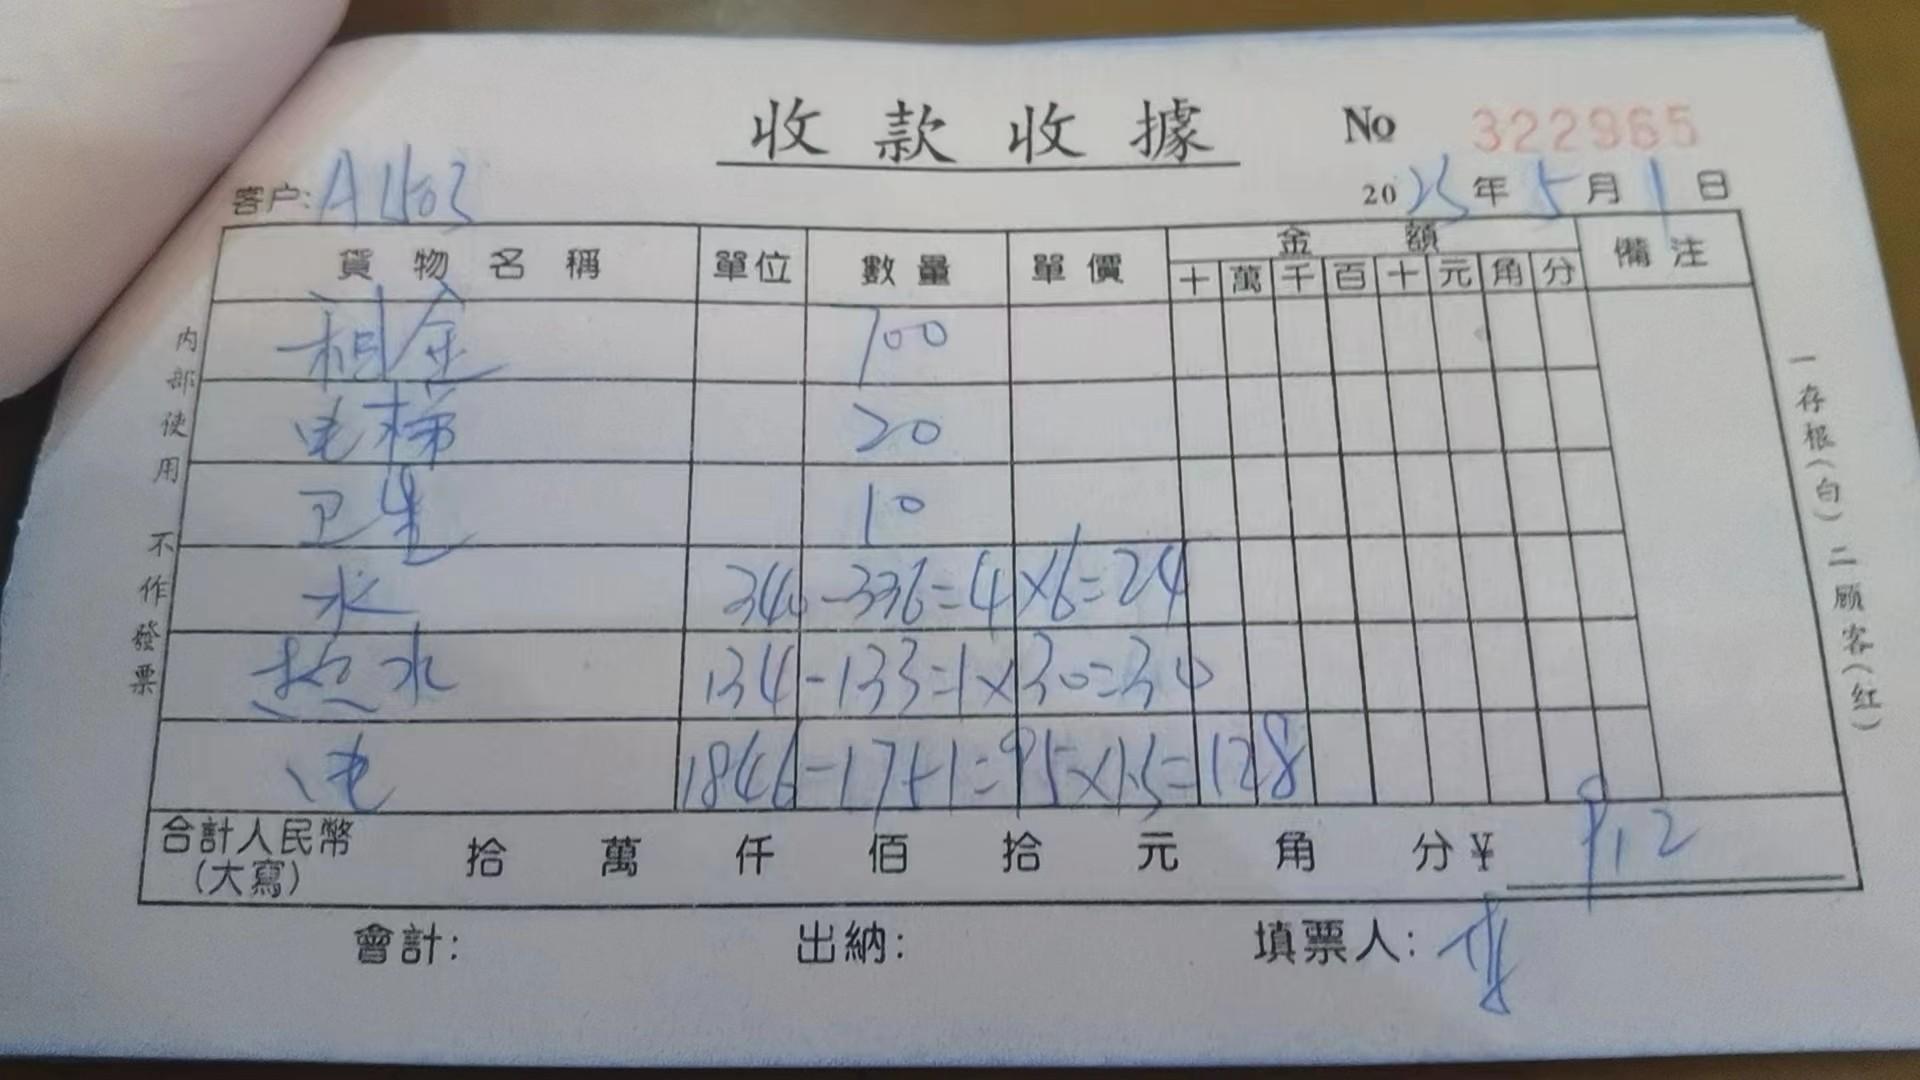 收款收據 No 322965
客户: A1103 2025年5月1日
貨物名稱 單位 數量 單價 金額 備注
十 萬 千 百 十 元 角 分
租金 700
电梯 20
卫生 10
水 340-336=4×6=24
热水 134-133=1×30=30
电 1846-1751=95×1.35=128
合計人民幣(大寫) 拾 萬 仟 佰 拾 元 角 分¥ 912
會計: 出納: 填票人:
内部使用 不作發票
一存根(白) 二顾客(红)